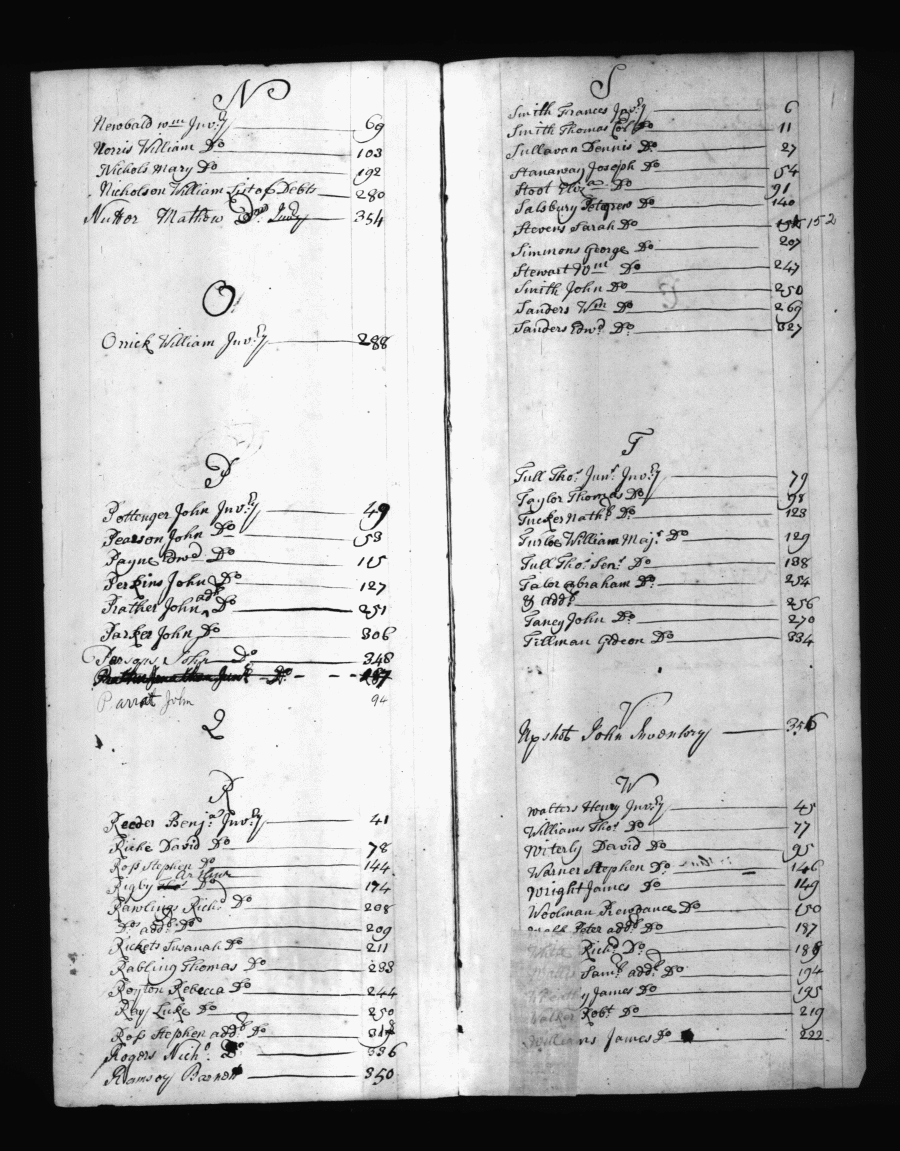 N
Newbald Wm Inv:ry 69
Norris William Do 103
Nichols Mary Do 192
Nicholson William List of Debts 280
Nutter Mathew 354
O
Orrick William Inv:ry 288
P
Pottenger John Inv:ry 49
Pearson John Do 53
Payne Edwd Do 115
Perkins John Do 127
Prather John addl Do 251
Parker John Do 306
Parsons John Do 348
Parrat John 94
Q
R
Reeder Benja: Inv:ry 41
Riche David Do 78
Ross Stephen Do 144
Rigby Arthur Do 174
Rawlings Richd Do 208
Do addl Do 209
Rickets Susanah Do 211
Rabling Thomas Do 233
Royton Rebecca Do 244
Ray Luke Do 250
Ross Stephen addl Do
Rogers Nicho: Do 336
Ramsey 350
S
Smith Frances Inv:ry 6
Smith Thomas Col 11
Sullavan Dennis Do 27
Stanaway Joseph Do 54
Stoot Do 91
Salsbury Do 140
Stevens Sarah Do 152
Simmons George Do 207
Stewart Wm Do 247
Smith John Do 250
Sanders Wm Do 269
Sanders Edwd Do 327
T
Tull Tho: Junr Inv:ry 79
Taylor Thomas Do 98
Tucker Nathl Do 123
Turloe William Majr Do 129
Tull Tho: Senr Do 138
Talor Abraham Do 254
& addl 256
Taney John Do 270
Tillman Gideon Do 334
V
Upshot John Inventory 356
W
Walters Henry Inv:ry 45
Williams Tho: Do 77
Witerly David Do 95
Warner Stephen Do 146
Wright James Do 149
Woolman Do 150
Peter addl Do 187
Richd Do 188
Saml addl Do 194
James Do 195
Walker Robt Do 219
Williams James Do 222